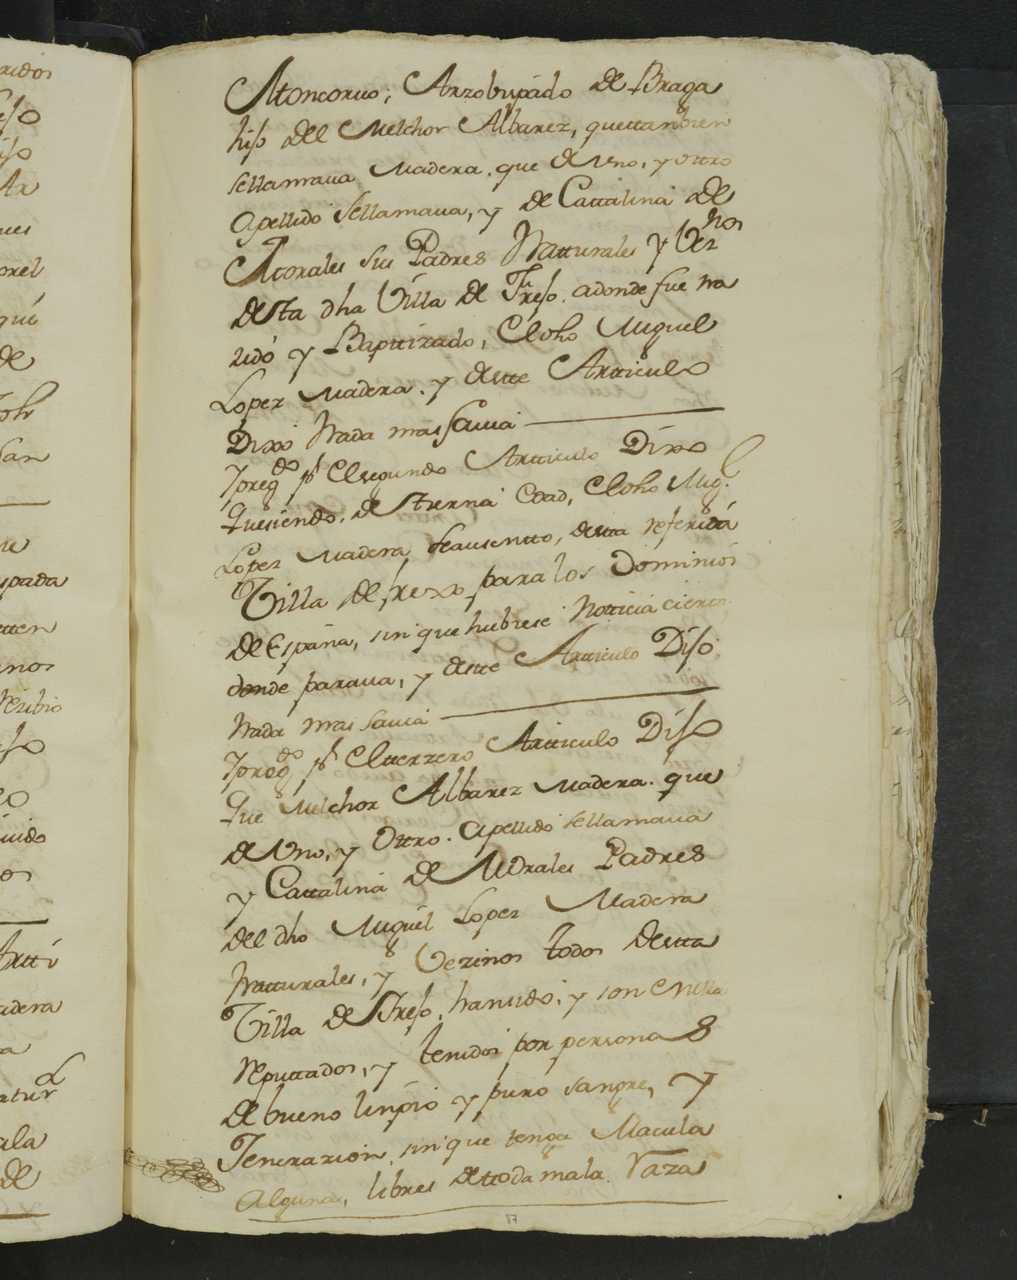 Moncoruo, Arzobispado de Braga
hijo del Melchor Albarez, quettanbien
sellamaua Madera, que de Vno, y ottro
apellido sellamaua, y de Cattalina de
Morales sus Padres Natturales y Vezºs
desta dha Villa de Frejo, adonde fue na
zido y Bapttizado, El dho Miguel
Lopez Madera, y deste Artticulo
Dixo Nada mas sauia
Y pregdo pr El segundo Artticulo Dixo
Que siendo, de tterna Edad, El dho Migl
Lopez Madera, seausentto, desta referida
Villa de frexo para los Dominios
de España, sin que hubiese Notticia cierta
donde paraua, y deste Artticulo Dijo
Nada mas sauia
Y pregdo pr El tterzero Artticulo Dijo
Que Melchor Albarez Madera, que
de Vno, y Ottro apellido sellamaua
y Cattalina de Morales Padres
del dho Miguel Lopez Madera
Natturales, y Vezinos todos desta
Villa de Frejo, hansido, y son en ella
Reputtados, y tenidos por personas
de bueno linpio y puro sangre, y
Jenerazion, sin que tenga Macula
Alguna, libres de ttoda mala Raza
87
ridos
de
que
spada
tten
nos
uido
Artti
adera
ala
de